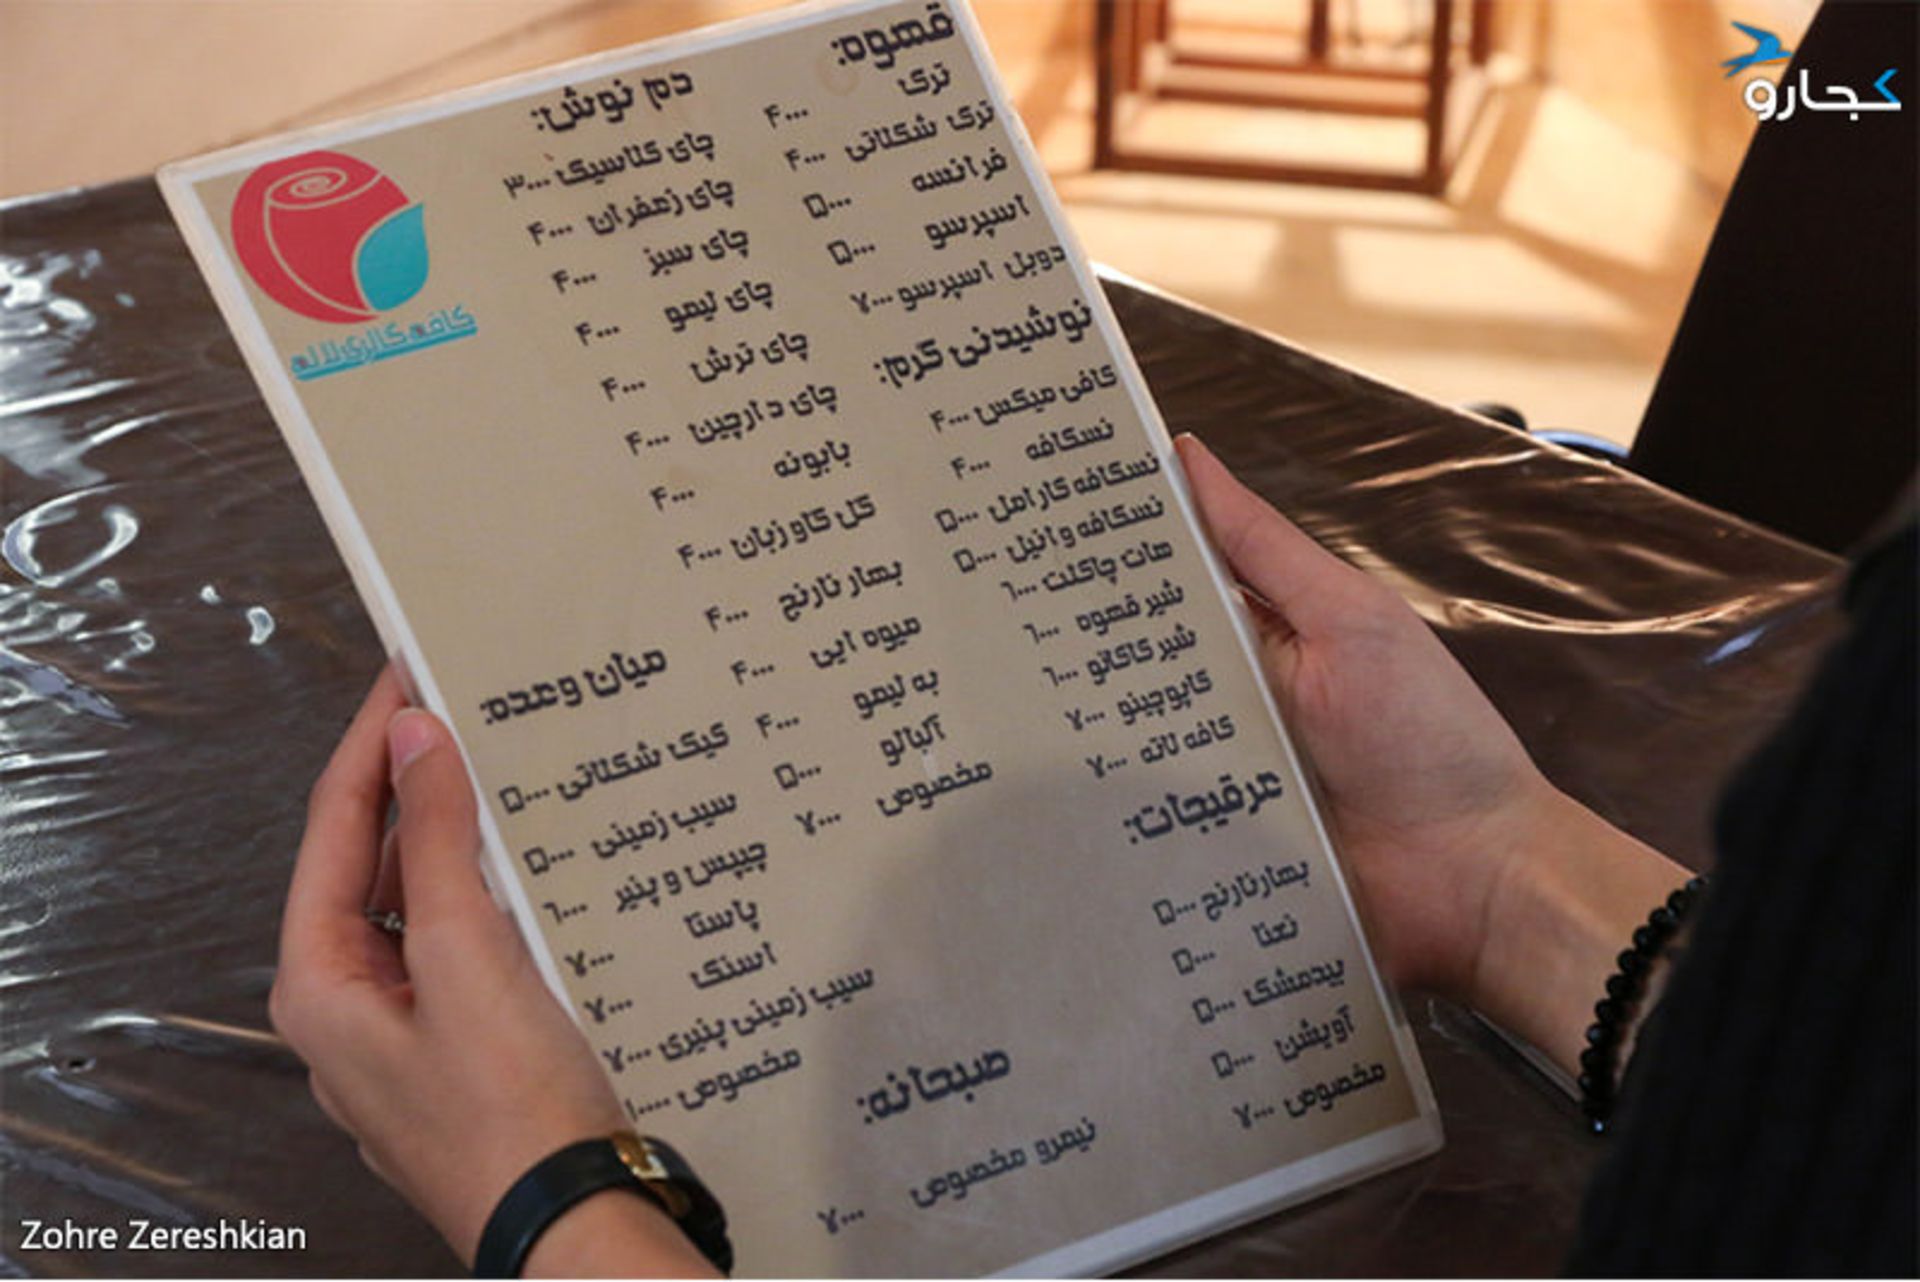 کجارو
کافه گالری لاله
قهوه:
ترک ۴۰۰۰
ترک شکلاتی ۴۰۰۰
فرانسه ۵۰۰۰
اسپرسو ۵۰۰۰
دوبل اسپرسو ۷۰۰۰
نوشیدنی گرم:
کافی میکس ۴۰۰۰
نسکافه ۴۰۰۰
نسکافه کارامل ۵۰۰۰
نسکافه وانیل ۵۰۰۰
هات چاکلت ۶۰۰۰
شیر قهوه ۶۰۰۰
شیر کاکائو ۶۰۰۰
کاپوچینو ۷۰۰۰
کافه لاته ۷۰۰۰
عرقیجات:
بهارنارنج ۵۰۰۰
نعنا ۵۰۰۰
بیدمشک ۵۰۰۰
آویشن ۵۰۰۰
مخصوص ۷۰۰۰
دم نوش:
چای کلاسیک ۳۰۰۰
چای زعفران ۴۰۰۰
چای سبز ۴۰۰۰
چای لیمو ۴۰۰۰
چای ترش ۴۰۰۰
چای دارچین ۴۰۰۰
بابونه ۴۰۰۰
گل گاو زبان ۴۰۰۰
بهار نارنج ۴۰۰۰
میوه ایی ۴۰۰۰
به لیمو ۴۰۰۰
آلبالو ۵۰۰۰
مخصوص ۷۰۰۰
میان وعده:
کیک شکلاتی ۵۰۰۰
سیب زمینی ۵۰۰۰
چیپس و پنیر ۶۰۰۰
پاستا ۷۰۰۰
اسنک ۷۰۰۰
سیب زمینی پنیری ۷۰۰۰
مخصوص ۱۰۰۰۰
صبحانه:
نیمرو مخصوص ۷۰۰۰
Zohre Zereshkian